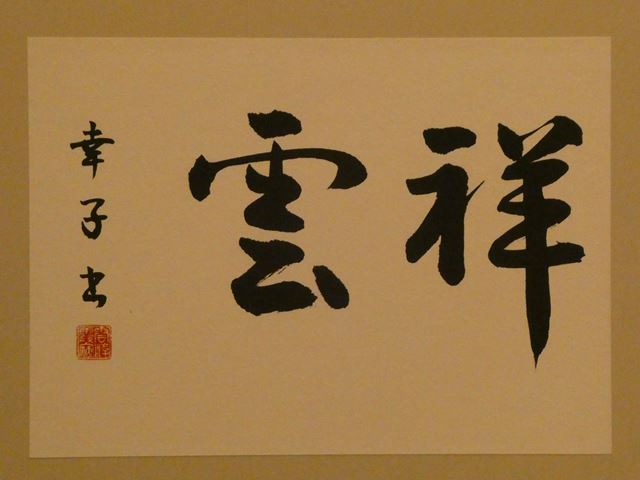 祥雲
幸子書